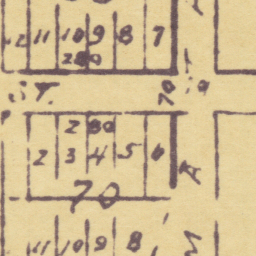 2 11 10 9 8 7
280
ST. 70
2 80
2 3 4 5 6
A
70
11 10 9 8
M